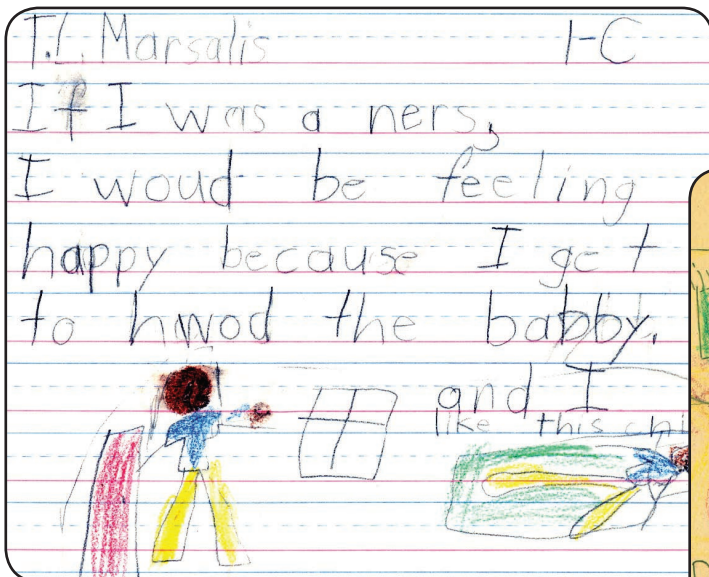 T.L. Marsalis 1-C
If I was a ners,
I woud be feeling
happy because I get
to hwod the babby.
and I
like this chi